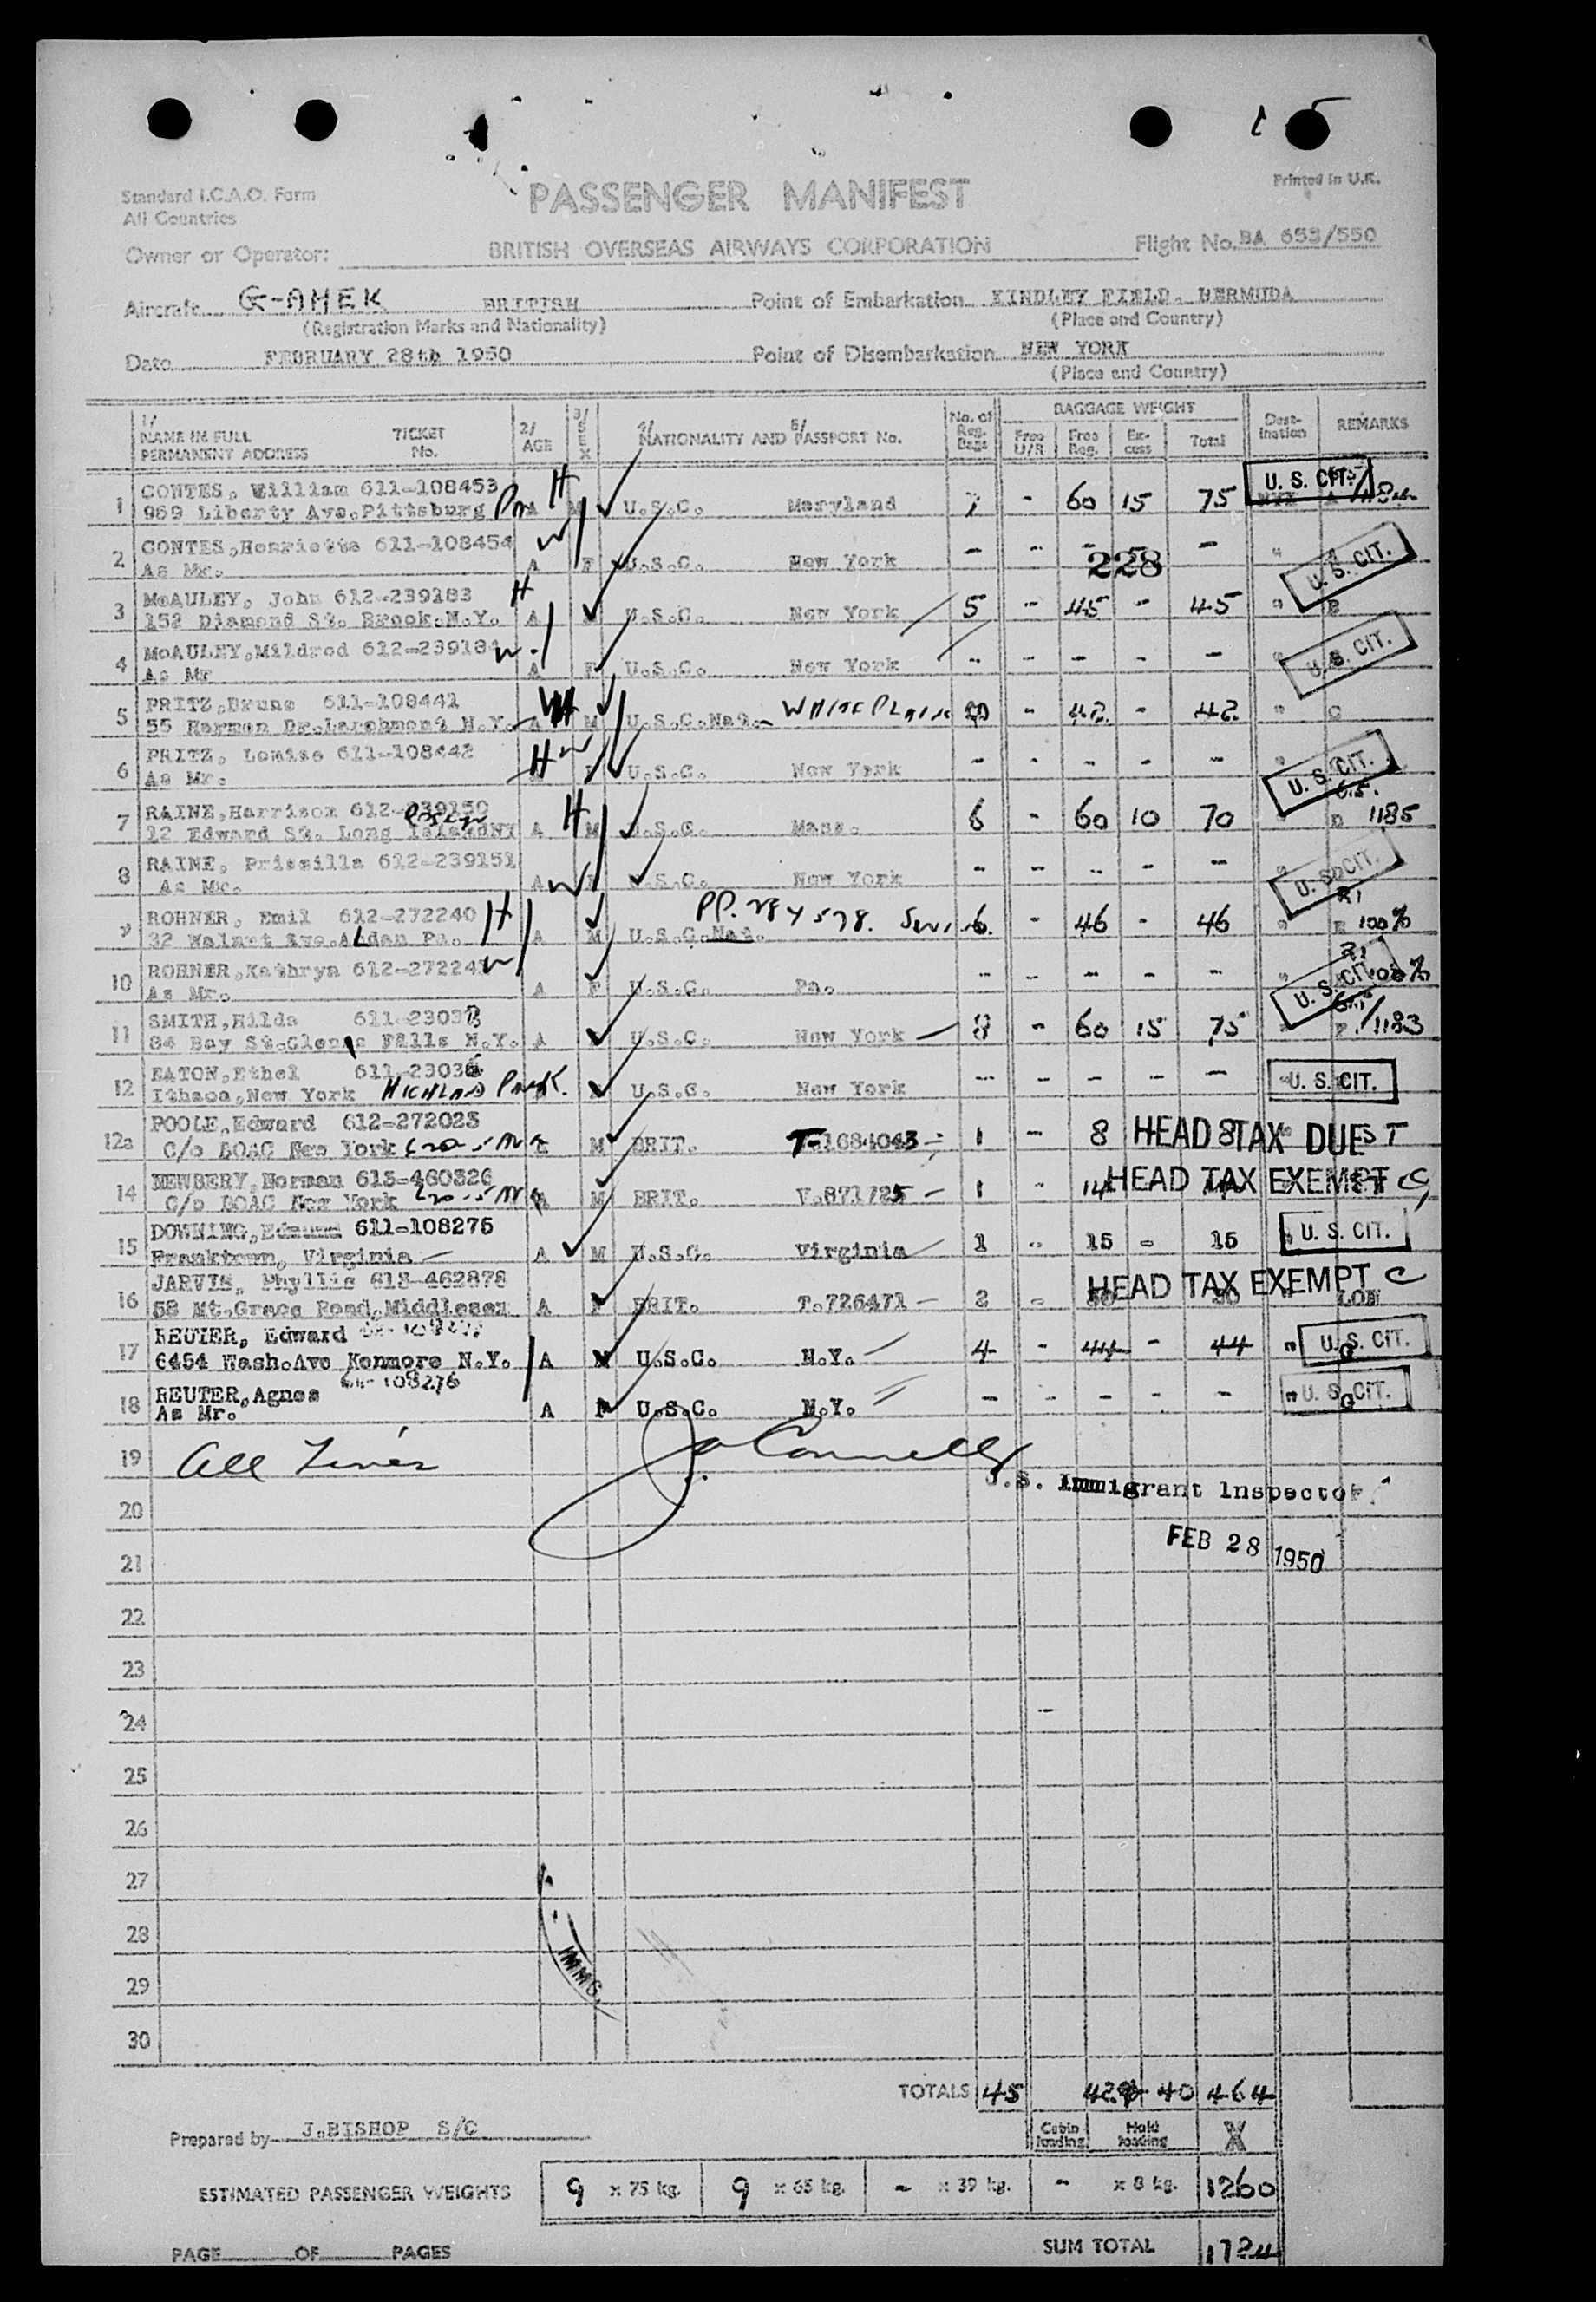 Standard I.C.A.O. Form
All Countries
PASSENGER MANIFEST
Printed in U.K.
Owner or Operator: BRITISH OVERSEAS AIRWAYS CORPORATION Flight No. BA 653/550
Aircraft G-AHEK BRITISH Point of Embarkation KINDLEY FIELD. BERMUDA
(Registration Marks and Nationality) (Place and Country)
Date FEBRUARY 28th 1950 Point of Disembarkation NEW YORK
(Place and Country)
1/ NAME IN FULL TICKET 2/ 3/ SEX 4/ NATIONALITY AND 5/ PASSPORT No. No. of Reg. Bags BAGGAGE WEIGHT Dest- ination REMARKS
PERMANENT ADDRESS No. AGE Free U/R Free Reg. Ex- cess Total
1 CONTES, William 611-108453 H
969 Liberty Ave.Pittsburg Pa A M U.S.C. Maryland 7 - 60 15 75 U. S. CIT.
2 CONTES,Henrietta 611-108454 W
As Mr. A F U.S.C. New York - - - - - " U. S. CIT.
228
3 McAULEY, John 612-239183 H
152 Diamond St. Brook.N.Y. A M U.S.C. New York 5 - 45 - 45 " B
4 McAULEY,Mildred 612-239184 W
As Mr A F U.S.C. New York - - - - - " U. S. CIT.
5 PRITZ,Bruno 611-108441
55 Harmon Dr.Larchmont N.Y. A M U.S.C.Nat. WHITE PLAINS - 42 - 42 " C
6 PRITZ, Louise 611-108442 W
As Mr. F U.S.C. New York - - - - - " U. S. CIT.
7 RAINE,Harrison 612-239150 H
12 Edward St. Long IslandNY A M U.S.C. Mass. 6 - 60 10 70 D 1185
8 RAINE, Prissilla 612-239151
As Mr. A W F U.S.C. New York - - - - - U. S. CIT.
9 ROHNER, Emil 612-272240 H PP. 284578.
32 Walnut Ave.Aldan Pa. A M U.S.C.Nat. 6 - 46 - 46 " E 100%
10 ROHNER,Kathryn 612-27224 W
As Mr. A F U.S.C. Pa. - - - - - " U. S. CIT. 100%
11 SMITH,Hilda 611-23037
84 Bay St.Glenns Falls N.Y. A U.S.C. New York 8 - 60 15 75 " F. 1183
12 EATON,Ethel 611-23036
Ithaca,New York HIGHLAND PARK. U.S.C. New York - - - - - " U. S. CIT.
12a POOLE,Edward 612-272023
C/o BOAC New York M BRIT. T-1684043 1 - 8 8 HEAD TAX DUE ST
14 NEWBERY,Norman 613-460326
C/o BOAC New York A M BRIT. V.871725 - 1 - 14 HEAD TAX EXEMPT G
15 DOWNING,Edmund 611-108275
Franktown, Virginia A M U.S.C. Virginia 1 - 15 - 15 " U. S. CIT.
16 JARVIS, Phyllis 613-462878
58 Mt.Grace Road,Middlesex A F BRIT. T.726471 - 2 - 30 30 HEAD TAX EXEMPT C LON
17 REUTER, Edward
6454 Wash.Ave Kenmore N.Y. A M U.S.C. N.Y. 4 - 44 - 44 " U. S. CIT. G
18 REUTER,Agnes 611-108276
As Mr. A F U.S.C. N.Y. - - - - - " U. S. CIT. G
19 All Times J. O'Connell
U.S. Immigrant Inspector
20
FEB 28 1950
21
22
23
24
25
26
27
28
IMMG.
29
30
TOTALS 45 424 40 464
Prepared by J.BISHOP S/C Cabin loading Hold loading X
ESTIMATED PASSENGER WEIGHTS 9 x 75 kg. 9 x 65 kg. - x 39 kg. - x 8 kg. 1260
PAGE OF PAGES SUM TOTAL 1724